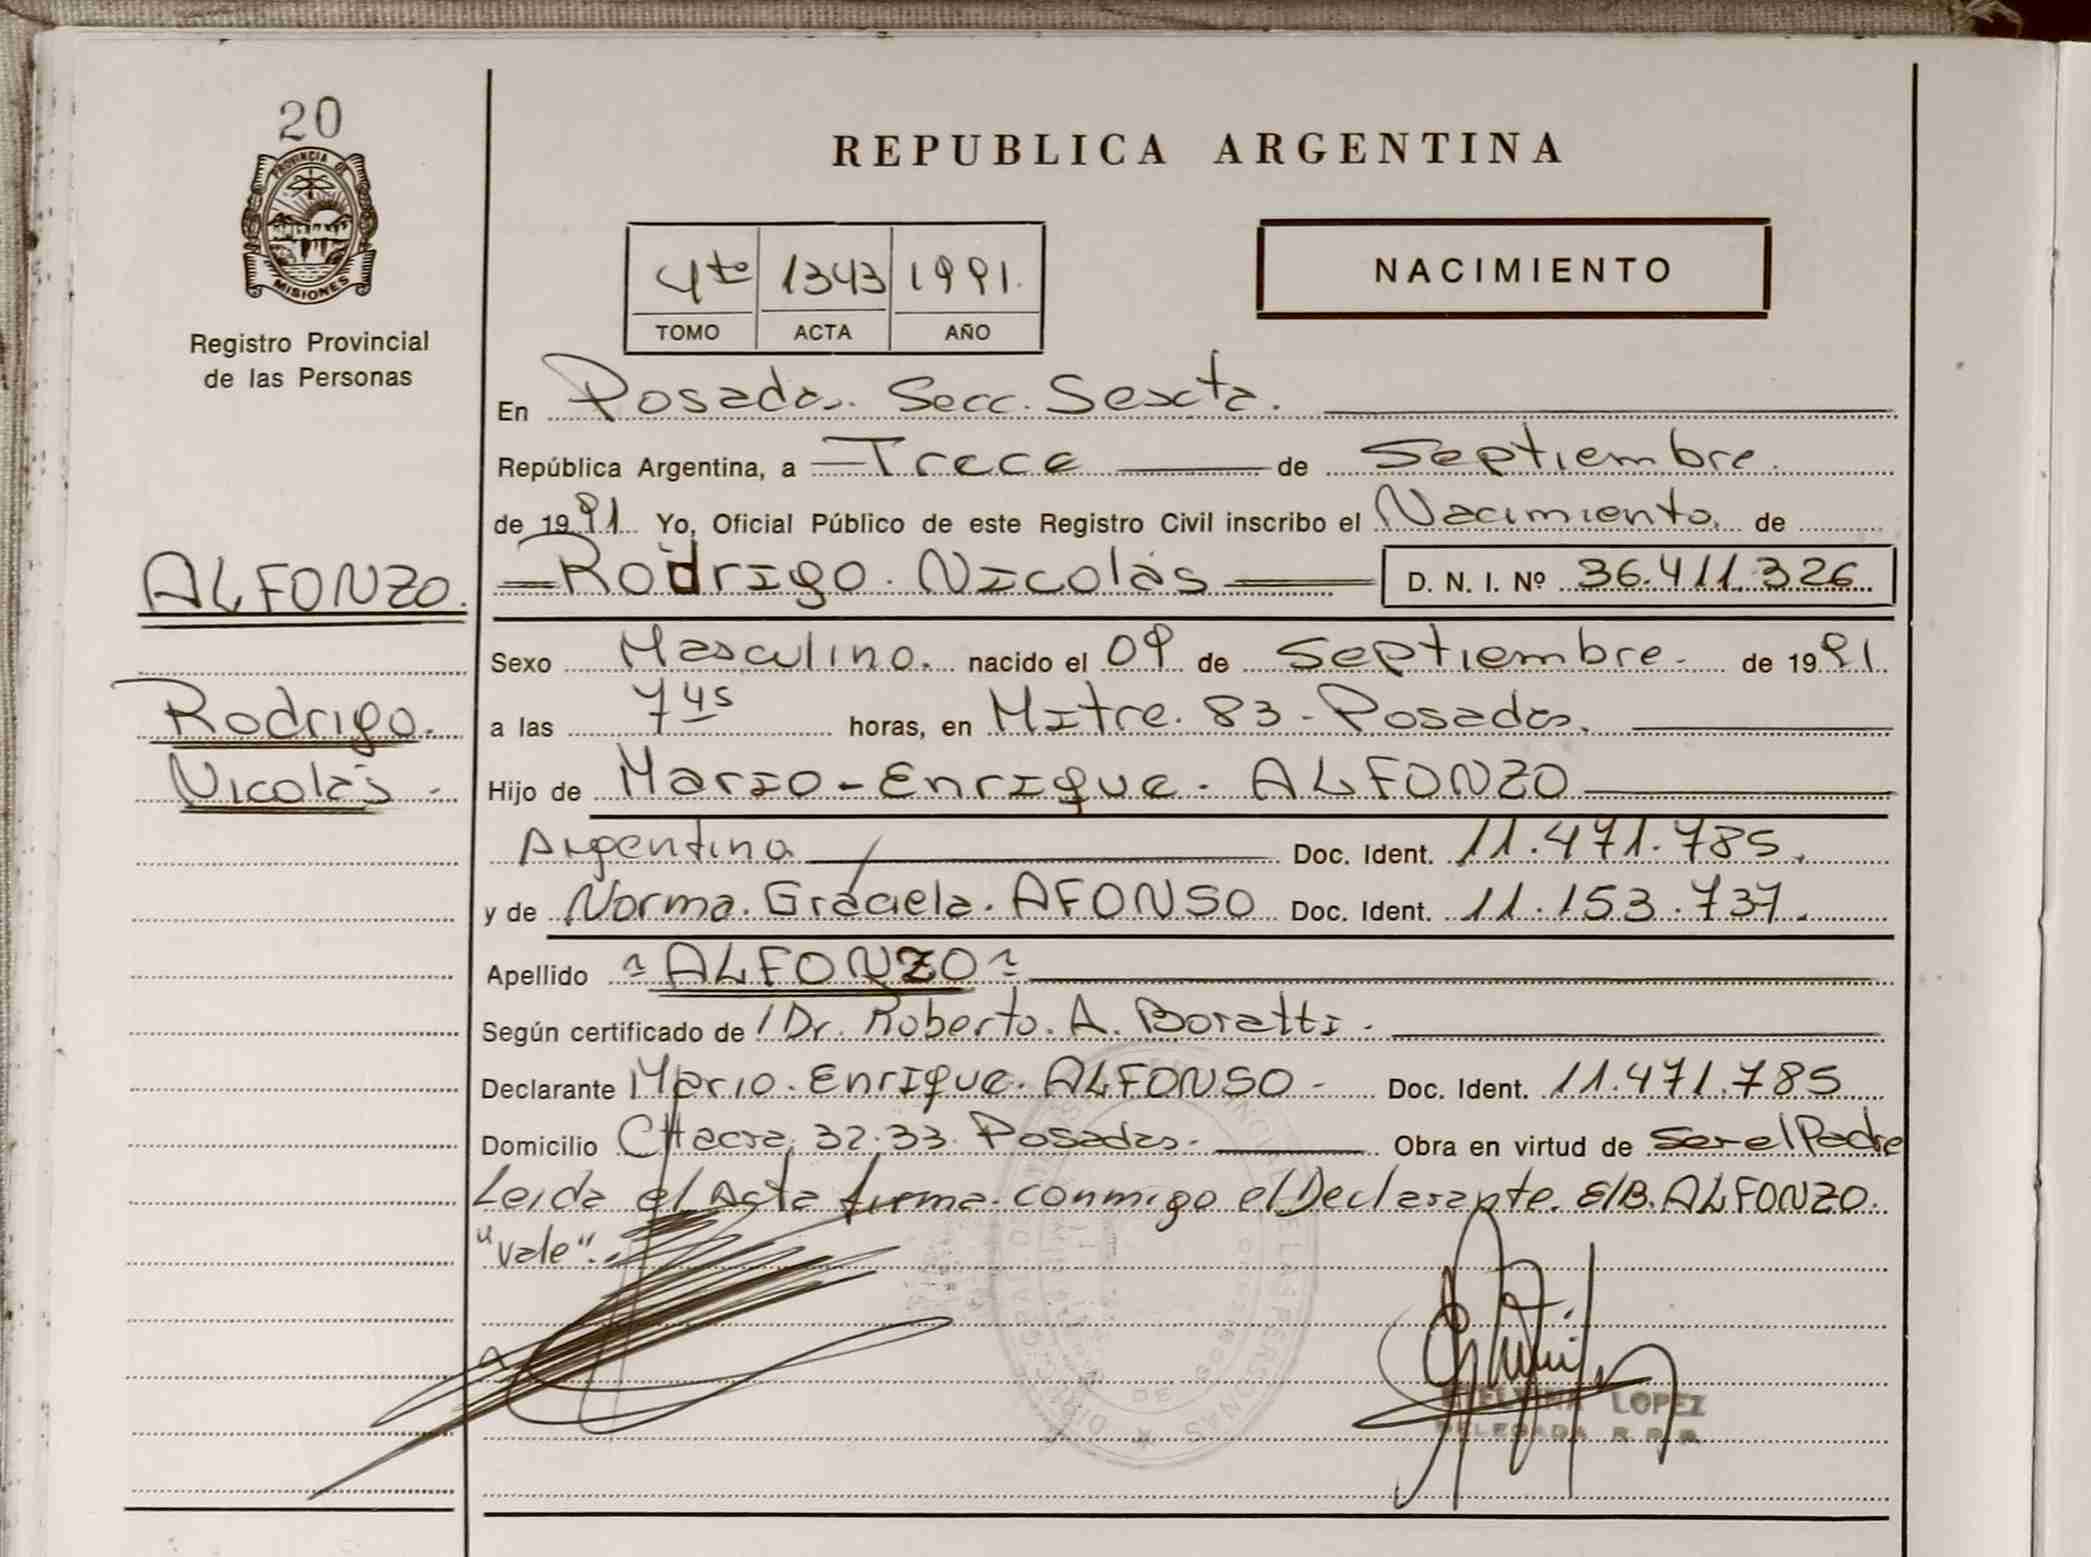 20
PROVINCIA DE
MISIONES
Registro Provincial
de las Personas
REPUBLICA ARGENTINA
4to 1343 1991.
TOMO ACTA AÑO
NACIMIENTO
En Posadas. Secc. Sexta.
República Argentina, a Trece de Septiembre.
de 1991 Yo, Oficial Público de este Registro Civil inscribo el Nacimiento. de
Rodrigo. Nicolás D. N. I. Nº 36.411.326
ALFONZO.
Rodrigo.
Nicolás -
Sexo Masculino. nacido el 09 de Septiembre. de 1991
a las 7 45 horas, en Mitre. 83 - Posadas.
Hijo de Mario - Enrique. ALFONZO
Argentina Doc. Ident. 11.471.785.
y de Norma. Graciela. AFONSO Doc. Ident. 11.153.737.
Apellido "ALFONZO"
Según certificado de / Dr. Roberto. A. Boratti.
Declarante Mario. Enrique. ALFONSO - Doc. Ident. 11.471.785
Domicilio CHacra. 32-33. Posadas. Obra en virtud de ser el Padre
Leida el Acta firma. conmigo el Declarante. E/B. ALFONZO.
"vale".
LOPEZ
DELEGADA R. P. P.